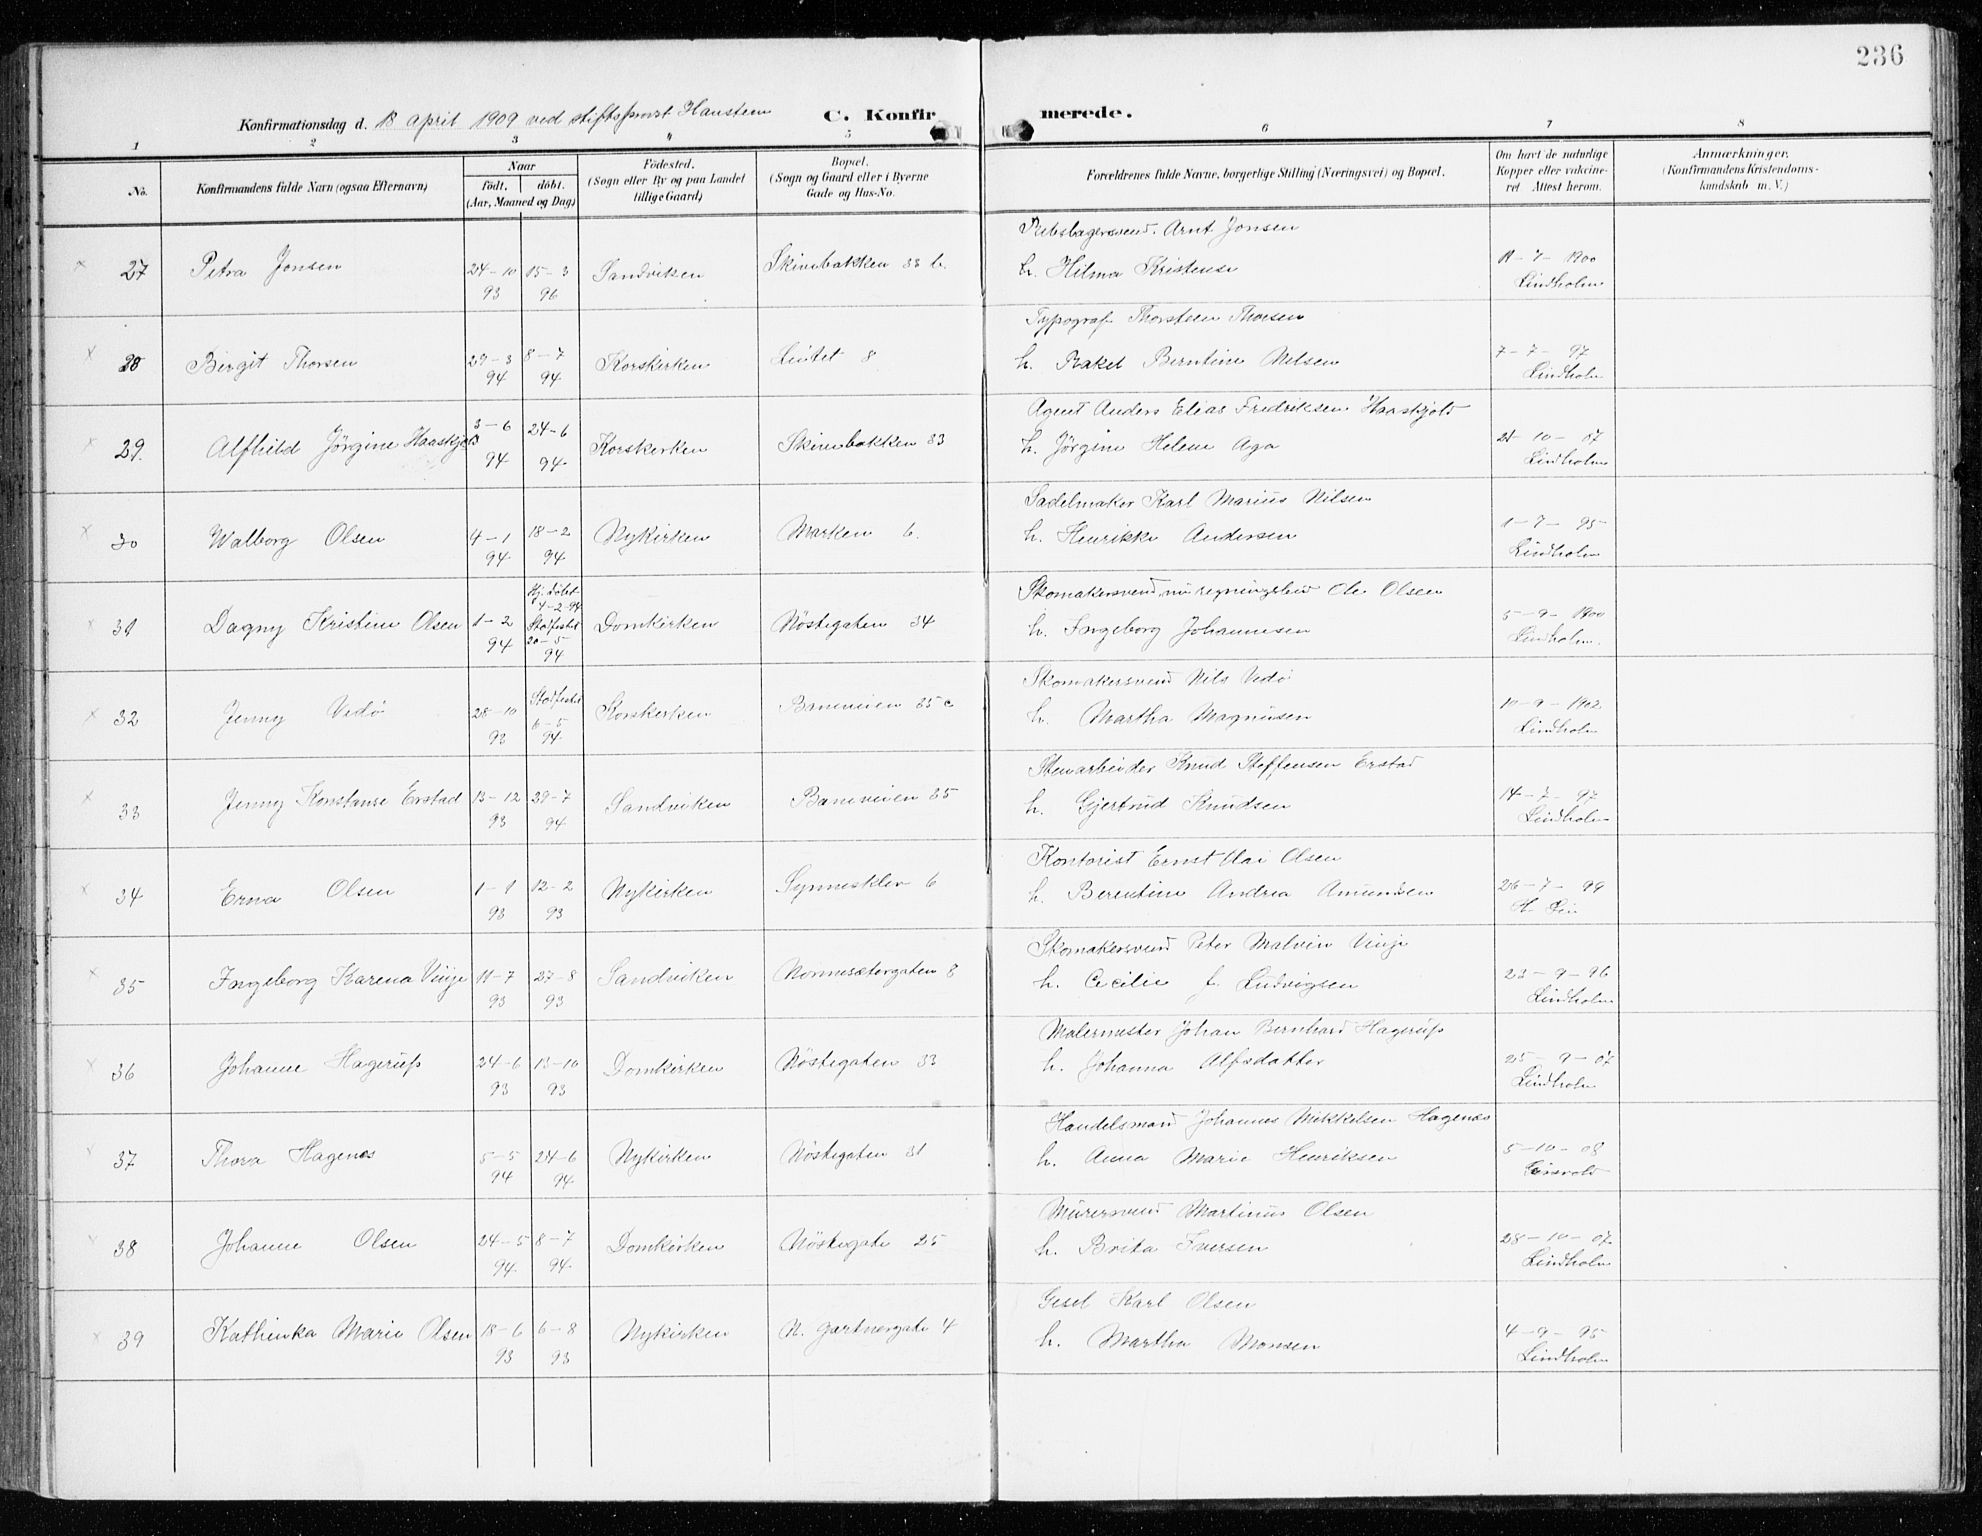 236
Konfirmationsdag d. 18 april 1909 ved stiftsprovst Hansteen
C. Konfirmerede.
1 2 3 4 5 6 7 8
No. | Konfirmandens fulde Navn (ogsaa Efternavn) | Naar födt. döbt. (Aar, Maaned og Dag) | Födested. (Sogn eller By og paa Landet tillige Gaard) | Bopæl. (Sogn og Gaard eller i Byerne Gade og Hus-No. | Forældrenes fulde Navne, borgerlige Stilling (Næringsvei) og Bopæl. | Om havt de naturlige Kopper eller vakcineret. Attest herom. | Anmærkninger. (Konfirmandens Kristendomskundskab m. V.)
27 Petra Jonsen 24-10 93 15-3 96 Sandviken Skivebakken 33 b. Rebslagersvend. Arnt Jonsen
h. Hilma Kristense 11-7-1900 Lindholm
28 Birgit Thorsen 29-3 94 8-7 94 Korskirken 8 Typograf Thorsteen Thorsen
h. Rakel Berntine Nilsen 7-7-97 Lindholm
29. Alfhild Jörgine Haaskjold 3-6 94 24-6 94 Korskirken Skivebakken 33 Agent Anders Elias Fredriksen Haaskjold
h. Jörgine Helene Aga 21-10-07 Lindholm
30 Walborg Olsen 4-1 94 18-2 94 Nykirken Marken 6. Sadelmaker Karl Marius Nilsen
h. Henrikke Andersen 1-7-95 Lindholm
31 Dagny Kristine Olsen 1-2 94 Hj. döbt 4-2-94 Stadfestet 20-5 94 Domkirken Nöstegaten 34 Skomakersvend, nu regningsbud Ole Olsen
h. Ingeborg Johannesen 5-9-1900 Lindholm.
32 Jenny Vedö 28-10 93 Stadfestet 6-5 94 Korskirken Baneveien 35 c Skomakersvend Nils Vedö
h. Martha Magnusen 10-9-1902 Lindholm
33 Jenny Konstanse Erstad 13-12 93 29-7 94 Sandviken Baneveien 35 Stenarbeider Knud Steffensen Erstad
h. Gjertrud Knudsen 14-7-97 Lindholm
34 Erna Olsen 1-1 93 12-2 93 Nykirken Synnesklev 6 Kontorist Ernst Olsen
h. Berentine Andrea Amundsen 26-7-99
35 Ingeborg Karena Vinje 11-7 93 27-8 93 Sandviken Nonnesætergaten 8 Skomakersvend Peter Malvin Vinje
h. Cecilie f. Ludvigsen 23-9-96 Lindholm
36 Johanne Hagerup 24-6 93 13-10 93 Domkirken Nöstegaten 33 Malermester Johan Bernhard Hagerup
h. Johanna Alfsdatter 25-9-07 Lindholm
37 Thora Hagenes 5-5 94 24-6 94 Nykirken Nöstegaten 31 Handelsmand Johannes Mikkelsen Hagenes
h. Anna Marie Henriksen 5-10-08
38 Johanne Olsen 24-5 94 8-7 94 Domkirken Nöstegate 25 Murersvend Martinus Olsen
h. Brita Iversen 28-10-07 Lindholm
39 Kathinka Marie Olsen 18-6 93 6-8 93 Nykirken N. Gartnergate 4 Gesel Karl Olsen
h. Martha Monsen 4-9-95 Lindholm